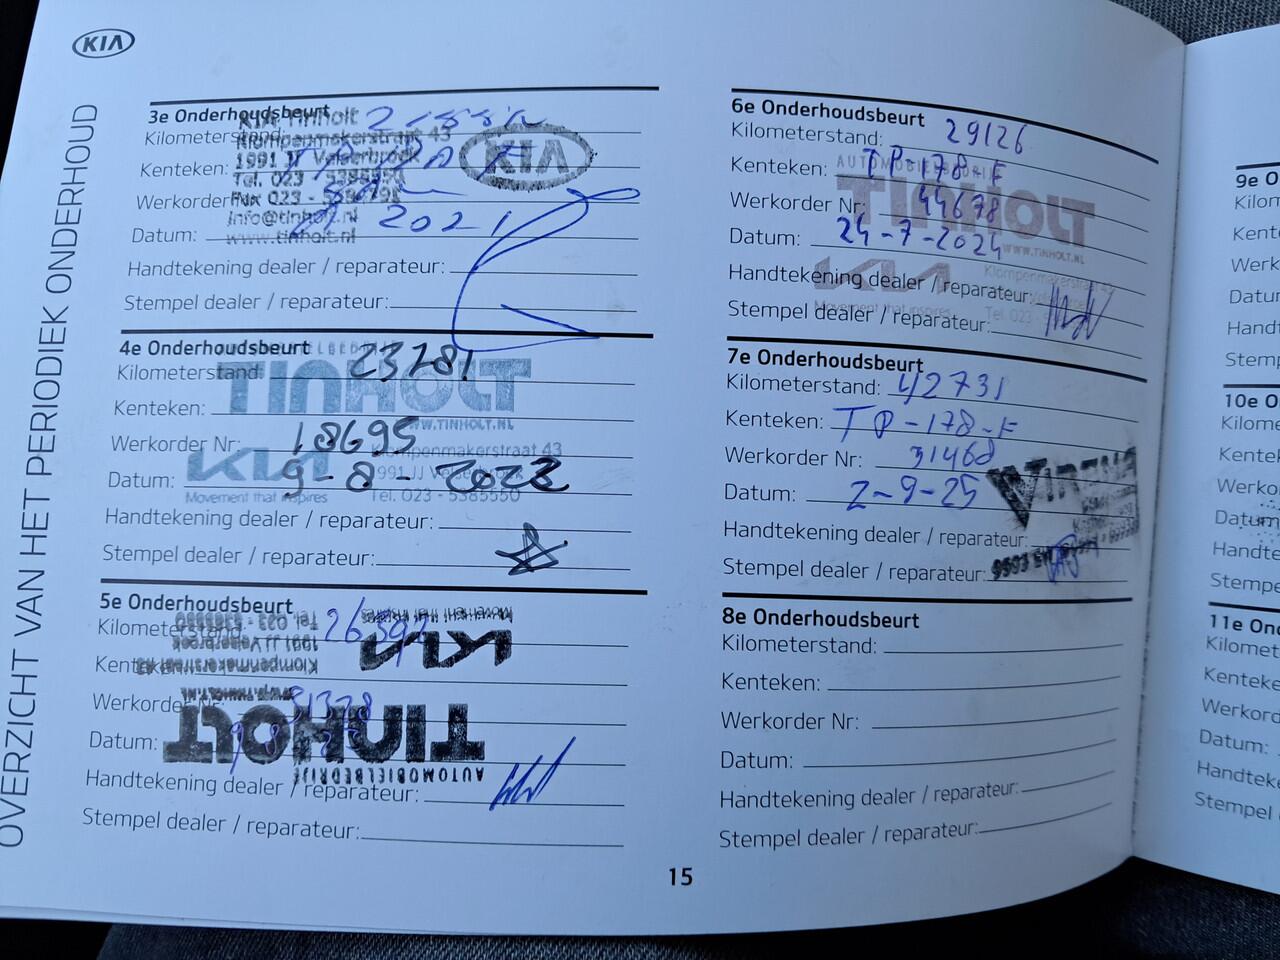 KIA
OVERZICHT VAN HET PERIODIEK ONDERHOUD
3e Onderhoudsbeurt
KIA Tinholt
Kilometerstand:
Klompenmakerstraat 43
1991 JJ Velserbroek
KIA
Kenteken:
Tel. 023 - 5385550
Werkorder
Fax 023 -
info@tinholt.nl
Datum: 2021
www.tinholt.nl
Handtekening dealer / reparateur:
Stempel dealer / reparateur:
4e Onderhoudsbeurt
Kilometerstand: 23281
TINHOLT
Kenteken:
WWW.TINHOLT.NL
Werkorder Nr: 18695
Klompenmakerstraat 43
KIA
1991 JJ Velserbroek
Datum: 9-8-2022
Movement that inspires
Tel. 023 - 5385550
Handtekening dealer / reparateur:
Stempel dealer / reparateur:
5e Onderhoudsbeurt
Movement that inspires
Tel. 023 - 5385550
Kilometerstand:
1991 JJ Velserbroek
KIA
Kenteken:
Klompenmakerstraat 43
Werkorder Nr: 31378
Datum:
TINHOLT
AUTOMOBIELBEDRIJF
Handtekening dealer / reparateur:
Stempel dealer / reparateur:
6e Onderhoudsbeurt
Kilometerstand: 29126
AUTOMOBIELBEDRIJF
Kenteken: TP-178-F
TINHOLT
Werkorder Nr: 44678
Datum: 24-7-2024
WWW.TINHOLT.NL
KIA
Klompenmakerstraat 43
Handtekening dealer / reparateur:
Movement that inspires
Tel. 023 - 5
Stempel dealer / reparateur:
7e Onderhoudsbeurt
Kilometerstand: 42731
Kenteken: TP-178-F
Werkorder Nr: 31468
Datum: 2-9-25
Handtekening dealer / reparateur:
Stempel dealer / reparateur:
8e Onderhoudsbeurt
Kilometerstand:
Kenteken:
Werkorder Nr:
Datum:
Handtekening dealer / reparateur:
Stempel dealer / reparateur:
15
9e O
Kilom
Kent
Werk
Datur
Handt
Stemp
10e O
Kilome
Kentek
Werko
Datum
Handte
Stempe
11e Ond
Kilomet
Kenteke
Werkord
Datum:
Handteke
Stempel